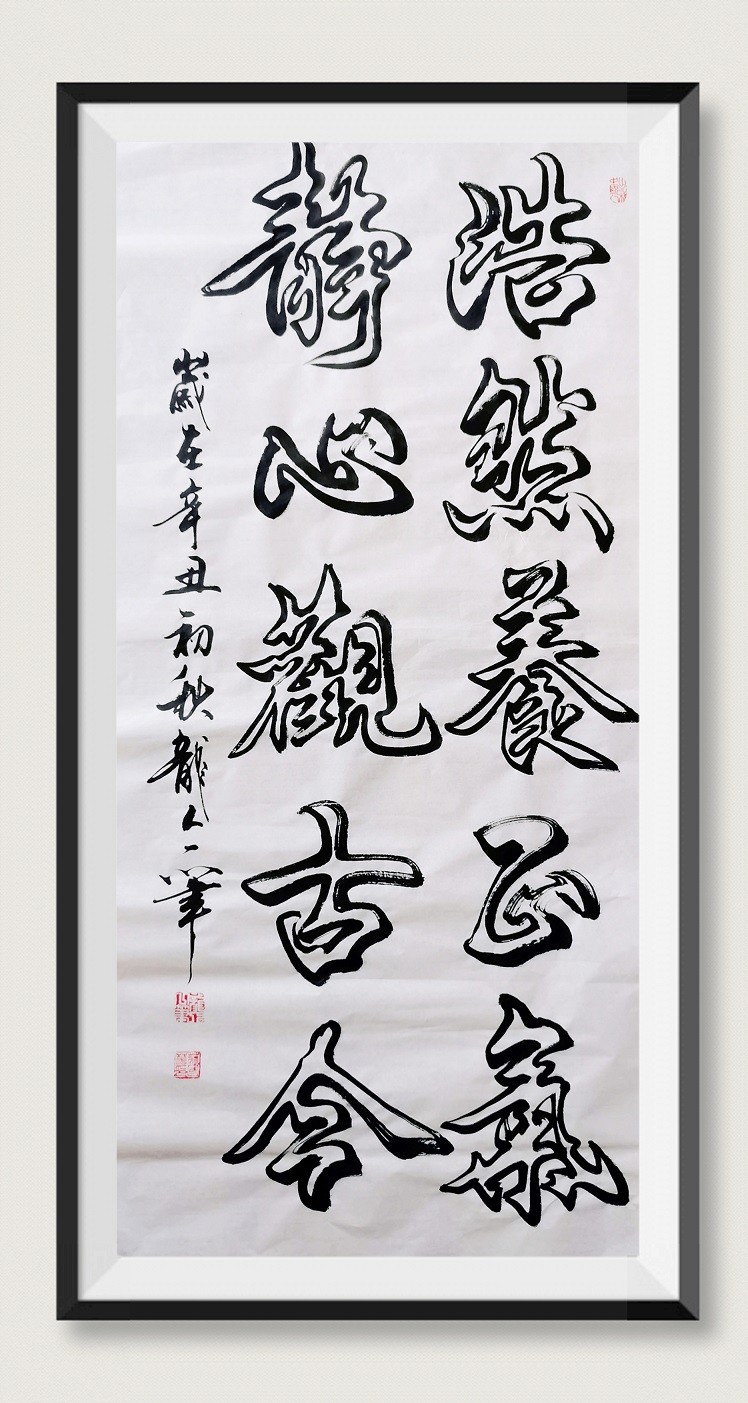 浩然養正氣
靜心觀古今
歲在辛丑初秋龍人一筆